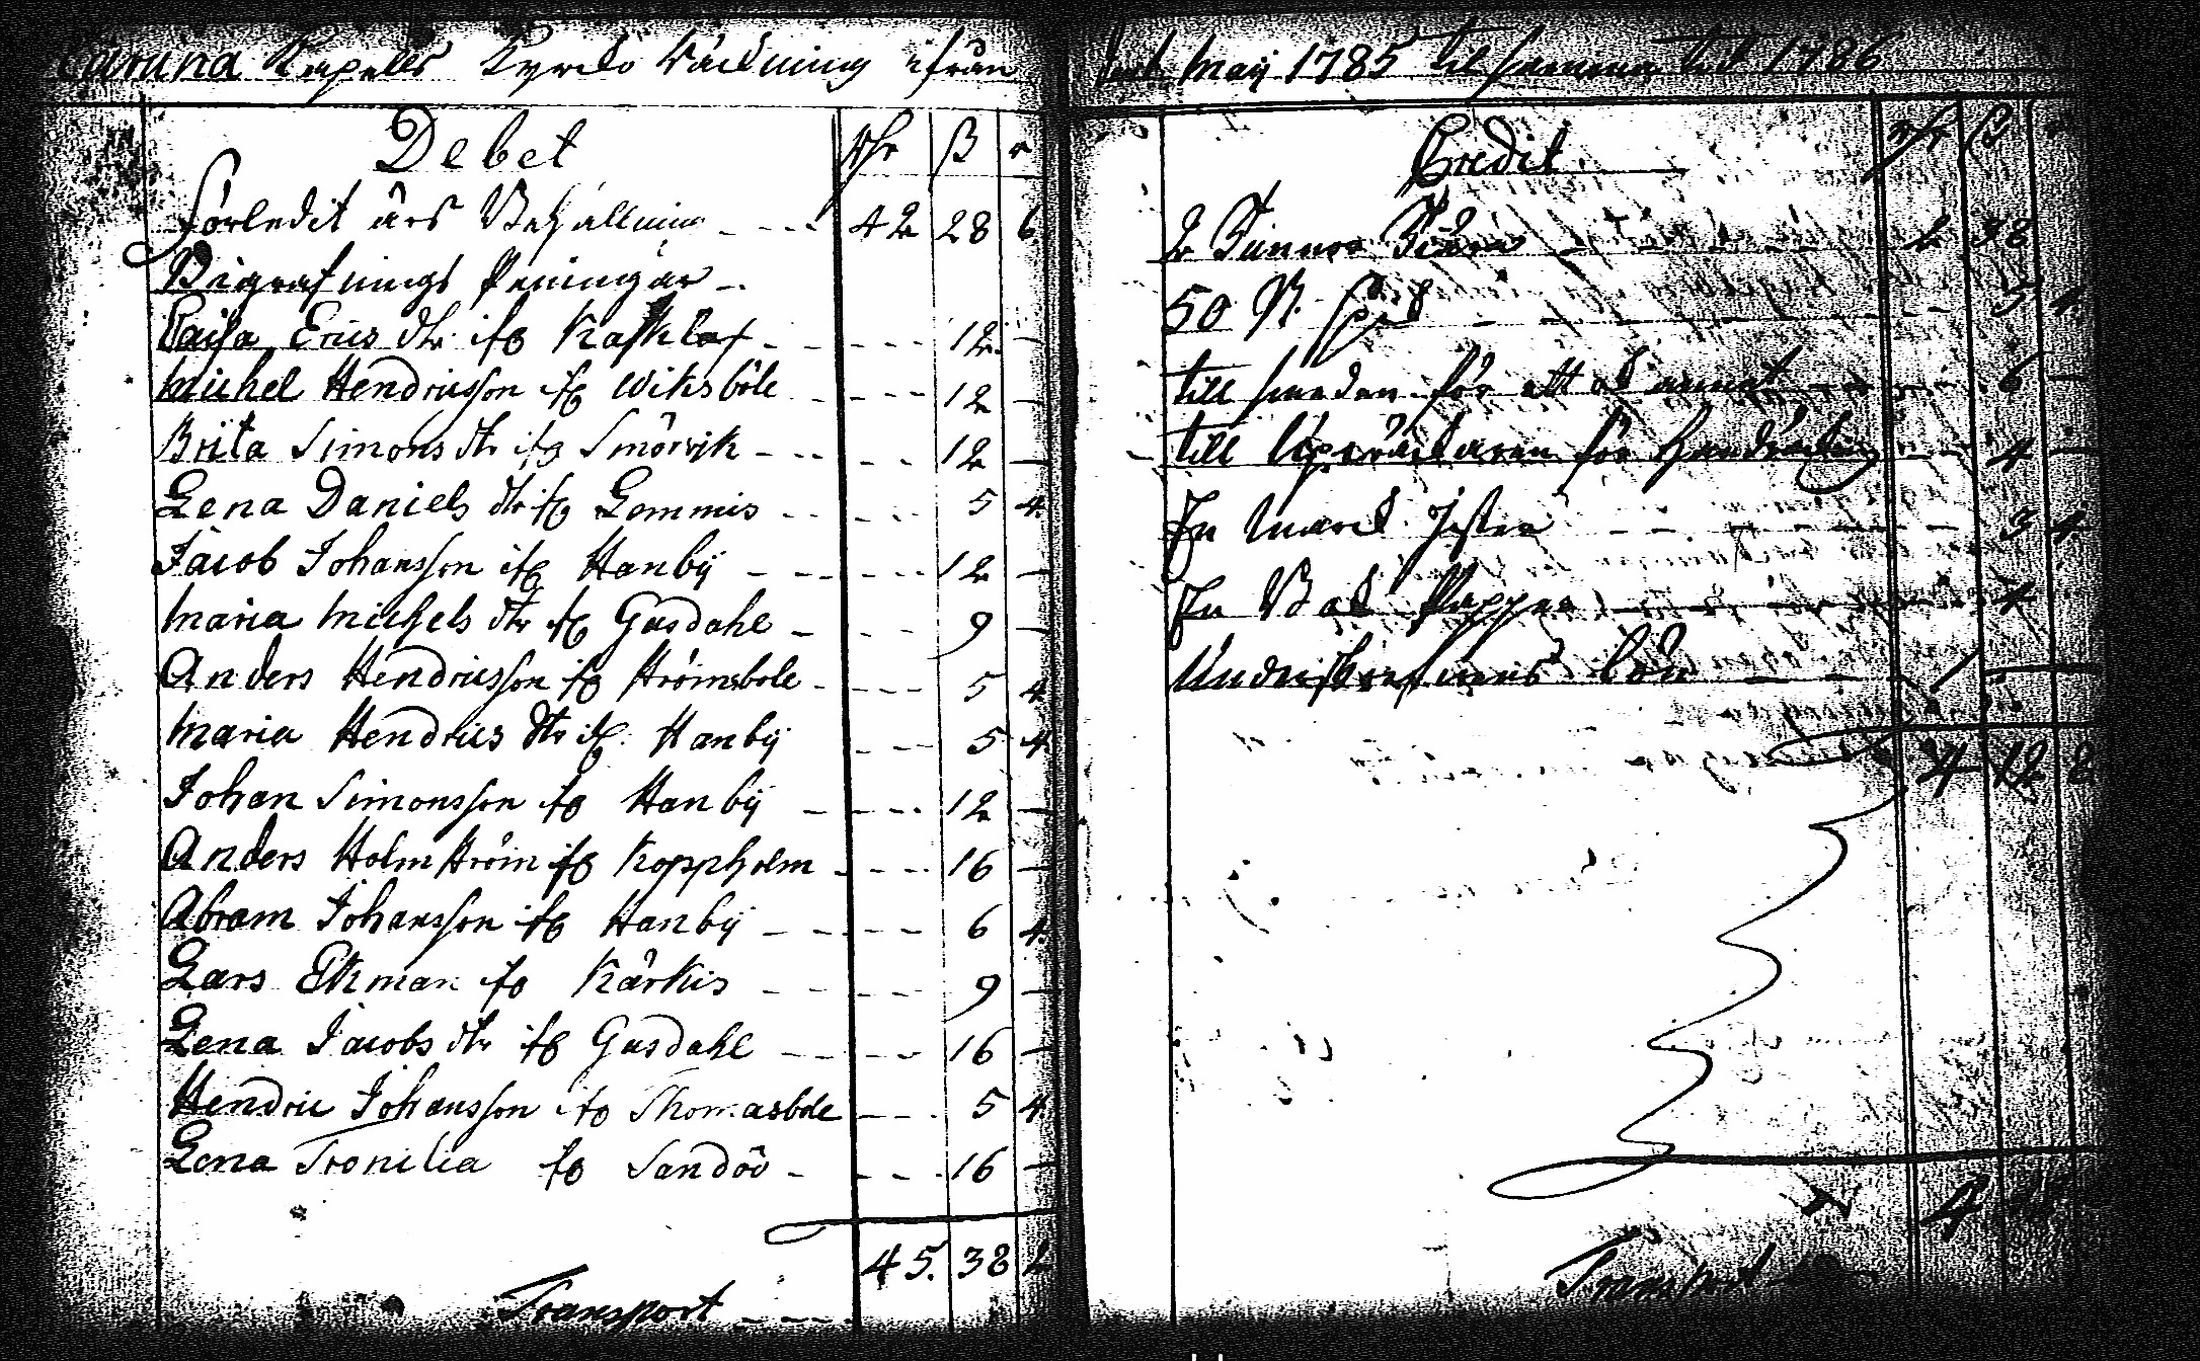 Capells Kyrko Räkning ifrån
Debet
Rdr ß r
Förledit års Behållning --- 42 28 6
Begrafnings Peningar --
Caisa Erics dtr ifr Kasklax ----- 12 —
Michel Hendricsson ifr Wiksböle ---- 12 —
Brita Simons dtr ifr Smörvik ---- 12 —
Lena Daniels dtr ifr Lemmis ---- 5 4
Jacob Johansson ifr Hanbÿ ---- 12 —
Maria Michels dtr ifr Gusdahl ---- 9 —
Anders Hendricsson ifr Strömsbole ---- 5 4
Maria Hendrics dtr ifr Hanbÿ --- 5 4
Johan Simonsson ifr Hanbÿ ---- 12 —
Anders Holmström ifr Koppholm ---- 16 —
Abram Johansson ifr Hanbÿ ----- 6 4
Lars Ekman ifr Kärkis ----- 9 —
Lena Jacobs dtr ifr Gusdahl ---- 16 —
Hendric Johansson ifr Thomasböle --- 5 4
Lena ifr Sandöö ---- 16 —
45. 38 2
Transport ----
Maij 1785 til samma tid 1786
Credit
Rdr ß
2 Tunnor ---- 2 38
50 ---- 5 4
till smeden för ett och annat ---- 6 —
till för ---- 4 —
En ---- 3 4
En Bok Papper ---- 4
lön ---- 1 —
4 12 2
4
Transport